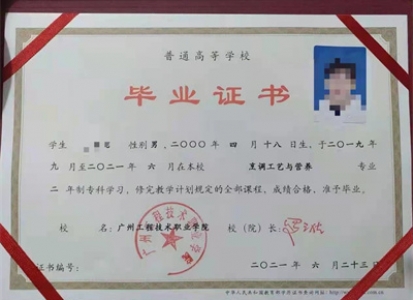 普通高等学校
毕业证书
学生 性别 男，二〇〇〇年 四 月 十八 日生，于二〇一九年
九 月至二〇二一年 六 月在本校 烹调工艺与营养 专业
二 年制专科学习，修完教学计划规定的全部课程，成绩合格，准予毕业。
校 名：广州工程技术职业学院 校（院）长：
广州工程技术职业学院
证书编号： 二〇二一年 六 月 二十三 日